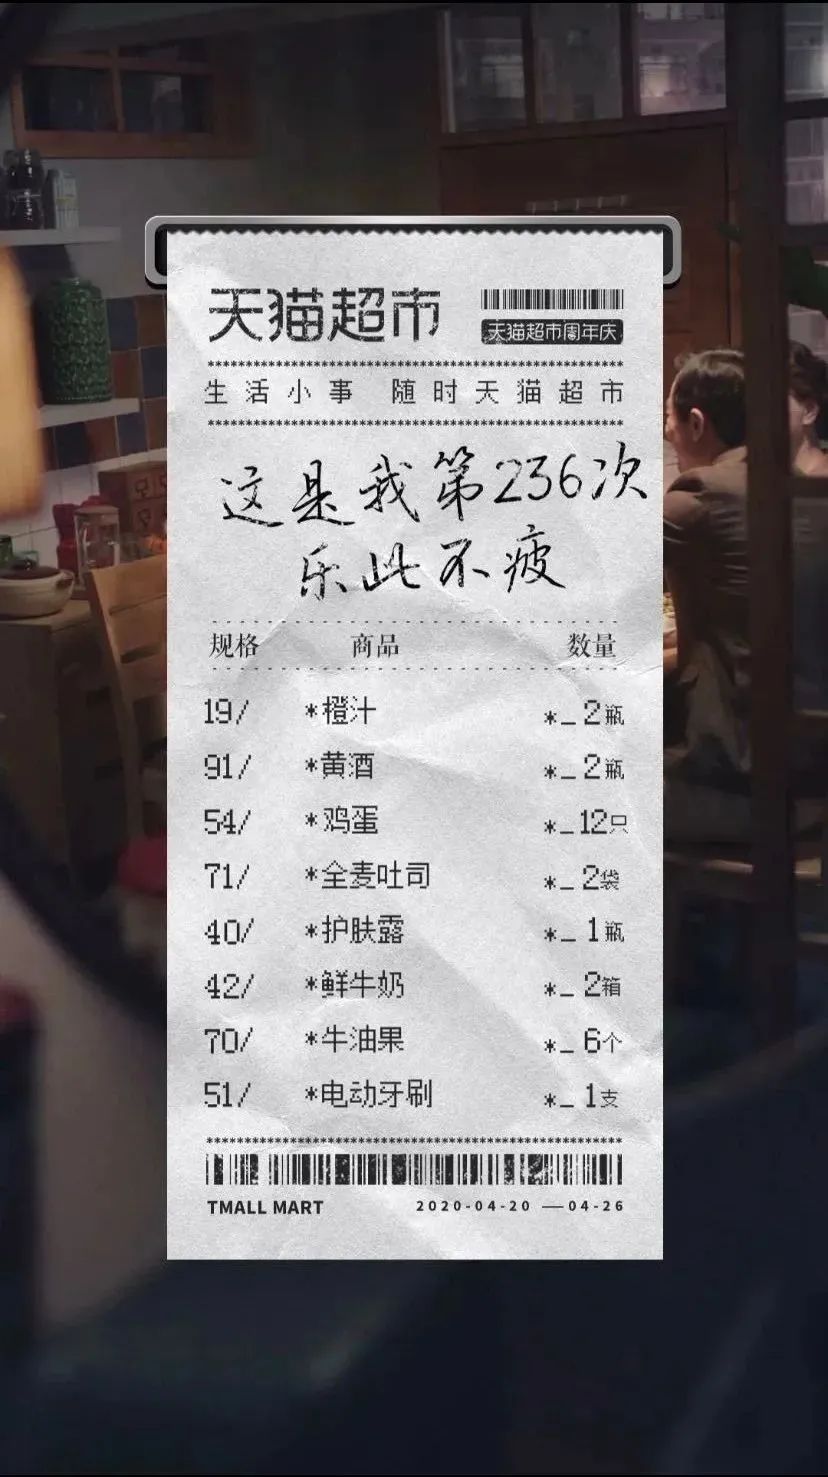 天猫超市
天猫超市周年庆
************************************************************
生活小事 随时天猫超市
************************************************************
这是我第236次
乐此不疲
规格 商品 数量
19/ *橙汁 *_ 2瓶
91/ *黄酒 *_ 2瓶
54/ *鸡蛋 *_ 12只
71/ *全麦吐司 *_ 2袋
40/ *护肤露 *_ 1瓶
42/ *鲜牛奶 *_ 2箱
70/ *牛油果 *_ 6个
51/ *电动牙刷 *_ 1支
************************************************************
TMALL MART 2020-04-20 —04-26